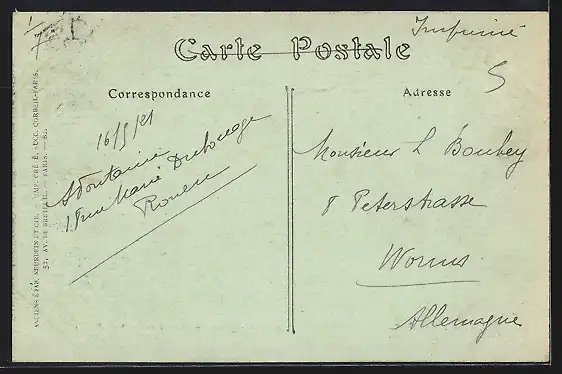 Imprimé
Carte Postale
5
Correspondance
Adresse
16/5/21
A Fontaine
1 rue Marie Dubocage
Rouen
Monsieur L Boubey
8 Peterstrasse
Worms
Allemagne
ANCIENS ÉTAB. NEURDEIN ET CIE. IMP. CRÉTÉ, SUCC. CORBEIL-PARIS.
52, AV. DE BRETEUIL. — PARIS.